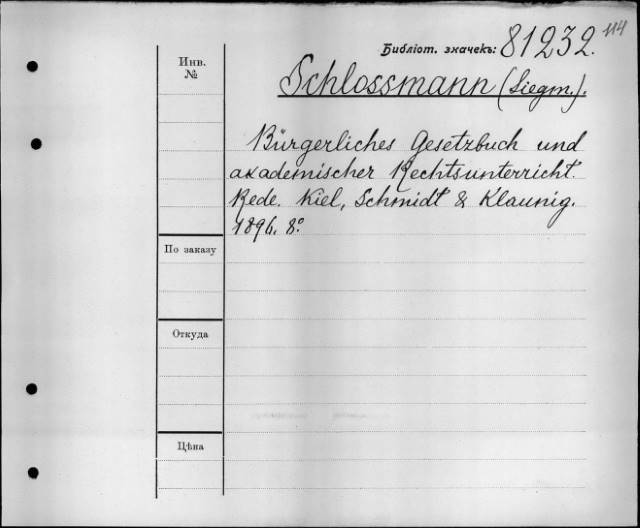 114
Библіот. значекъ: 81232.
Инв.
№
Schlossmann (Siegm.).
Bürgerliches Gesetzbuch und
akademischer Rechtsunterricht.
Rede. Kiel, Schmidt & Klaunig.
1896. 8°.
По заказу
Откуда
Цѣна